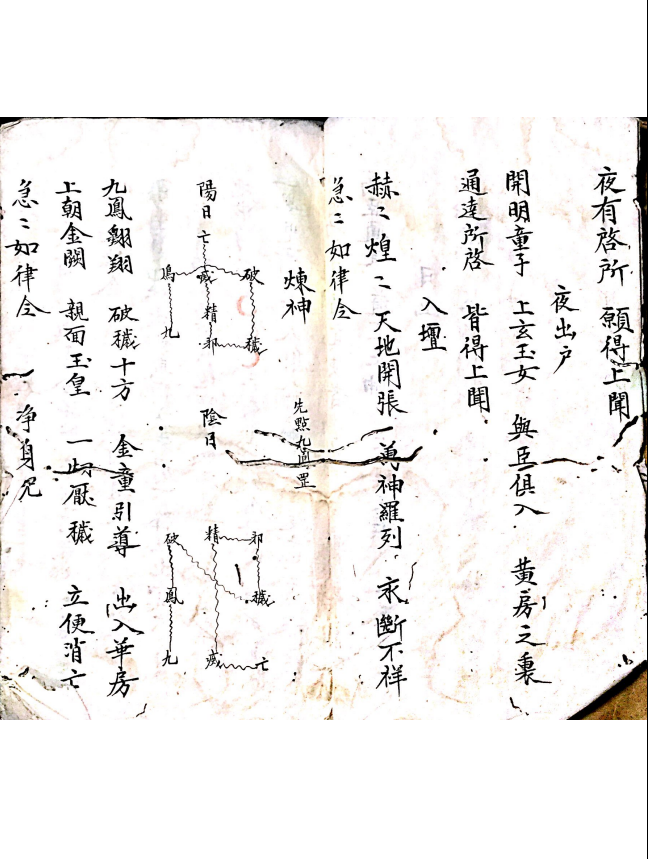 夜有啓所　願得上聞
夜出戶
開明童子　上玄玉女　與臣俱入　黃房之裏
通達所啓　皆得上聞
入壇
赫〻煌〻　天地開張　萬神羅列　永斷不祥
急〻如律令
煉神
先點九鳳罡
陽日
亡
鳳 破
精
九 邪 穢
陰日
破 精 邪
鳳 穢
九 亡
九鳳翱翔　破穢十方　金童引導　出入華房
上朝金闕　親面玉皇　一 厭穢　立便消亡
急〻如律令　净身咒